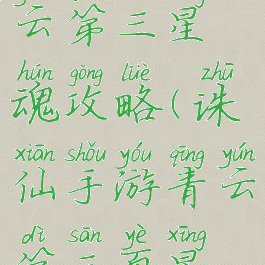 云第三星
hún gōng lüè zhū
魂攻略(诛
xiān shǒu yóu qīng yún
仙手游青云
dì sān yè xīng
第三页星